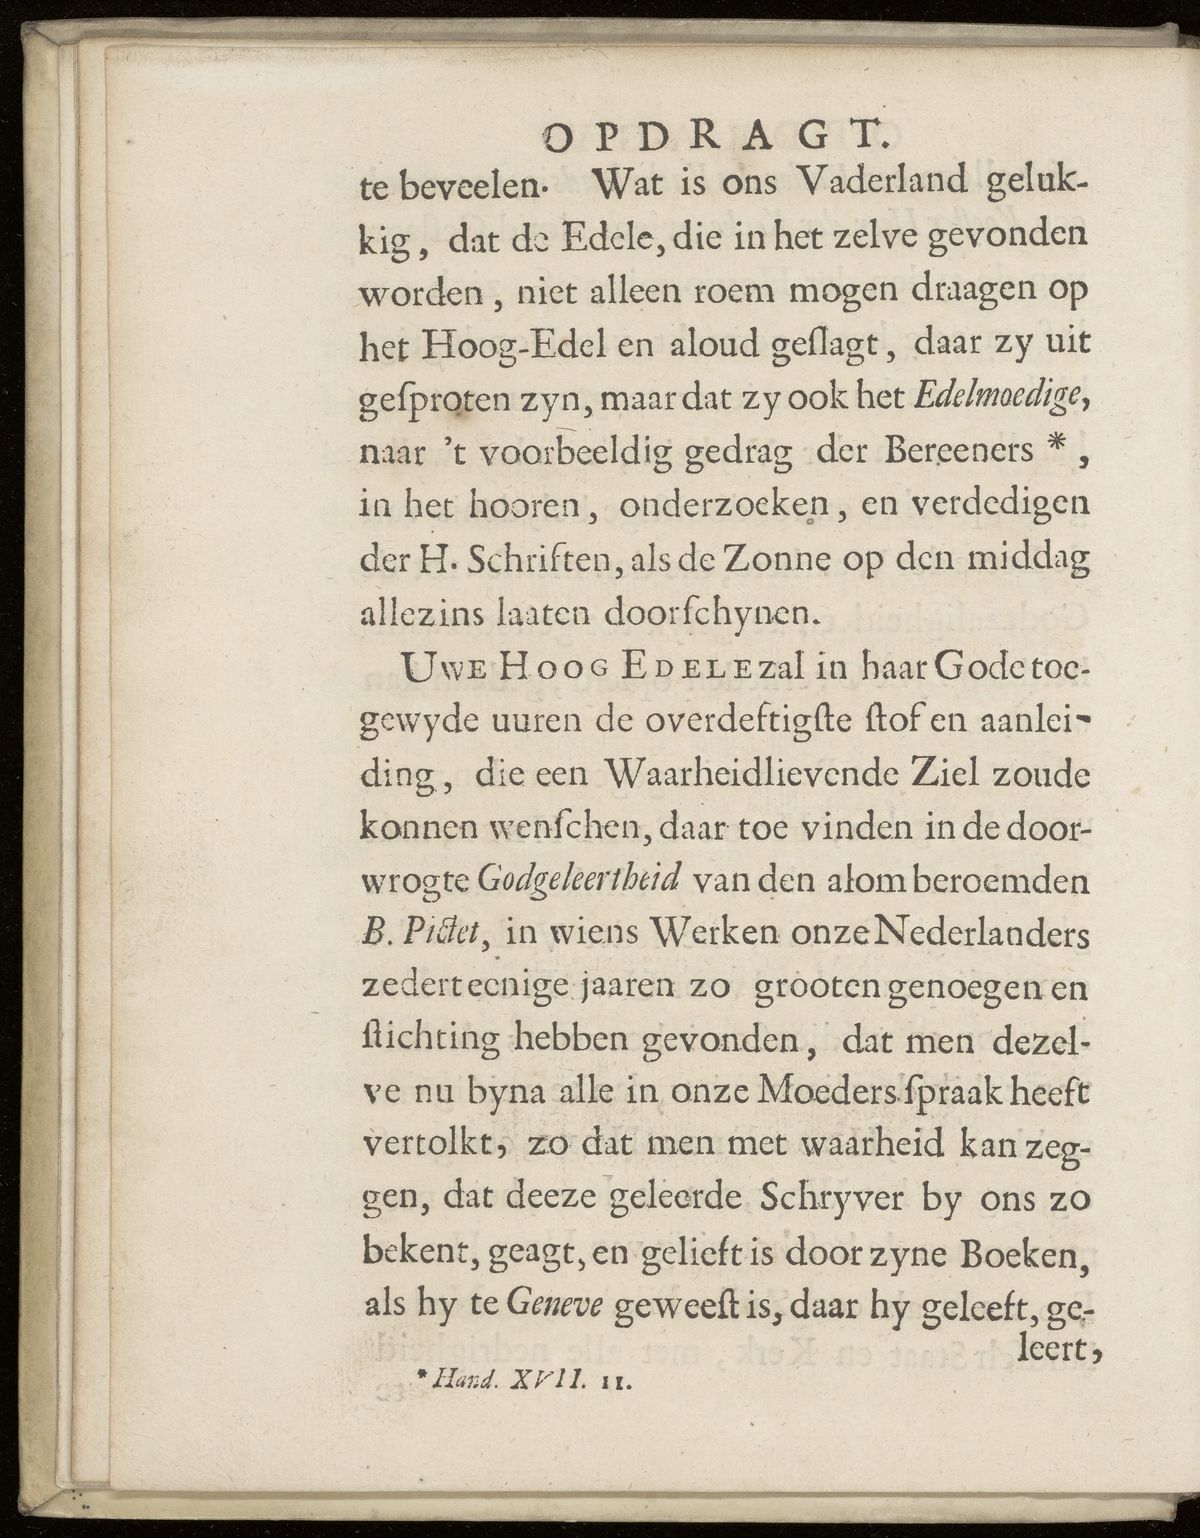 OPDRAGT.
te beveelen. Wat is ons Vaderland geluk-
kig, dat de Edele, die in het zelve gevonden
worden, niet alleen roem mogen draagen op
het Hoog-Edel en aloud geſlagt, daar zy uit
geſproten zyn, maar dat zy ook het Edelmoedige,
naar 't voorbeeldig gedrag der Bereeners *,
in het hooren, onderzoeken, en verdedigen
der H. Schriften, als de Zonne op den middag
allezins laaten doorſchynen.
UWE HOOG EDELE zal in haar Gode toe-
gewyde uuren de overdeftigſte ſtof en aanlei-
ding, die een Waarheidlievende Ziel zoude
konnen wenſchen, daar toe vinden in de door-
wrogte Godgeleertheid van den alom beroemden
B. Pictet, in wiens Werken onze Nederlanders
zedert eenige jaaren zo grooten genoegen en
ſtichting hebben gevonden, dat men dezel-
ve nu byna alle in onze Moeders ſpraak heeft
vertolkt, zo dat men met waarheid kan zeg-
gen, dat deeze geleerde Schryver by ons zo
bekent, geagt, en gelieft is door zyne Boeken,
als hy te Geneve geweeſt is, daar hy geleeft, ge-
leert,
* Hand. XVII. 11.